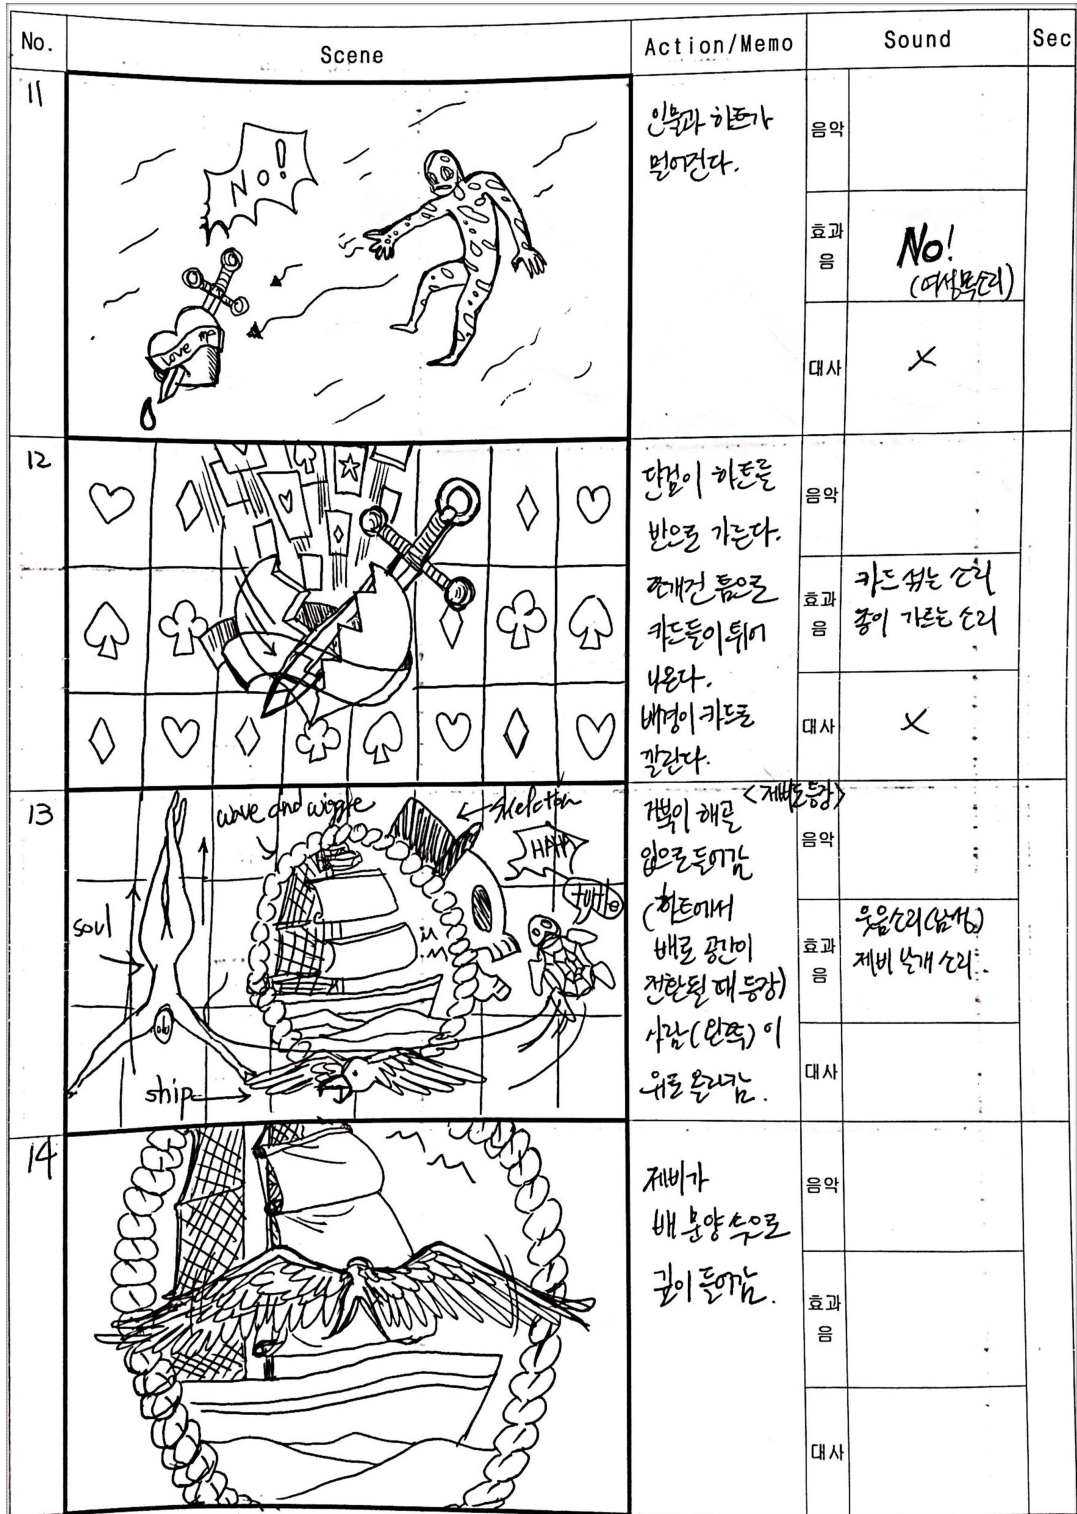 No.
Scene
Action/Memo
Sound
Sec
11
NO!
Love me
인물과 하트가
멀어진다.
음악
효과
음
No!
(여성목소리)
대사
X
12
단검이 하트를
반으로 가른다.
쪼개진 틈으로
카드들이 튀어
나온다.
배경이 카드로
깔린다.
음악
효과
음
카드 섞는 소리
종이 가르는 소리
대사
X
13
wave and wiggle
← skeleton
HAHA
turtle
soul
ship
<제비도 등장>
거북이 해골
입으로 들어감
(하트에서
배로 공간이
전환될 때 등장)
사람(왼쪽)이
위로 올라감.
음악
효과
음
웃음소리(남성)
제비 날개 소리
대사
14
제비가
배 문양 속으로
깊이 들어감.
음악
효과
음
대사